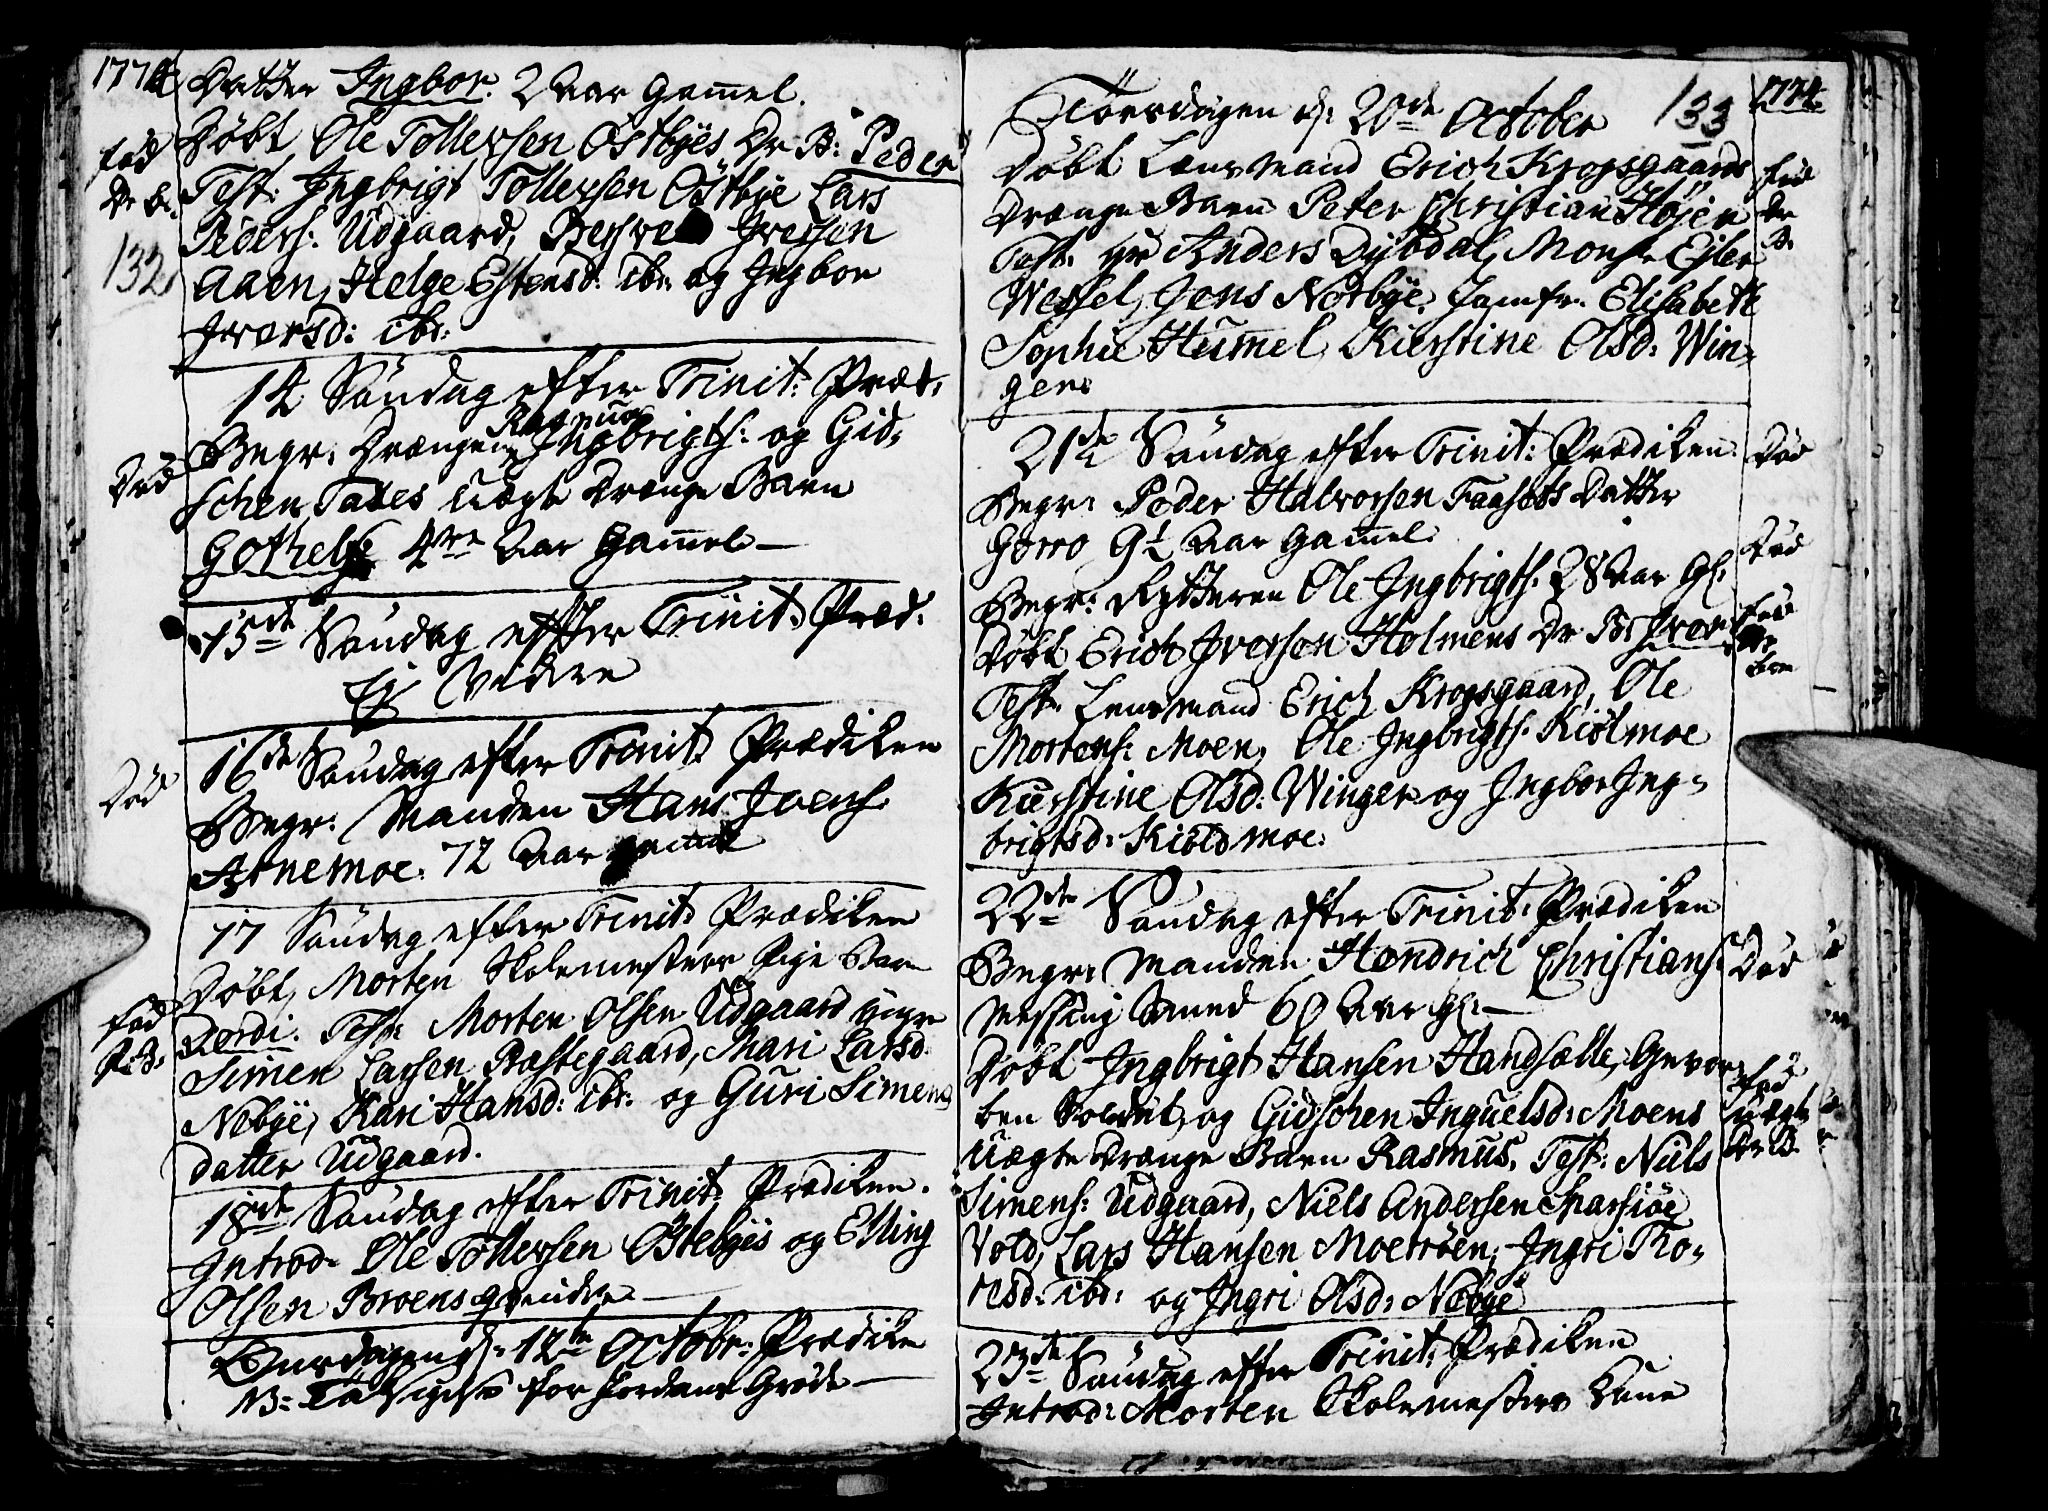 1774
Datter Ingbor. 2 Aar Gam̅el.
fød
Dr. B.
Døbt Ole Tollefsen Østbyes Dr B: Peder
Test: Ingbrigt Tollefsen Østbye Lars
Peders: Udgaard, Iversen
132
Aaen, Helge Estensd: ibr: og Ingbor
Iversd: ibr:
14 Søndag efter Trinit: Præd.
Død
Begr: Drængen Rasmus Ingbrigts: og Gid-
schen Tades Uægte Drænge Barn
Gothelf 4re Aar Gam̅el.
15de Søndag efter Trinit: Præd.
Ej Videre
16de Søndag efter Trinit: Prædiken
Død
Begr: Manden Hans Joens:
Arnemoe. 72 Aar gam̅el
17 Søndag efter Trinit: Prædiken
Døbt, Morten Skolemesters Pige Barn
fød
P. B.
Dordi. Test: Morten Olsen Udgaard yngre
Simen Larsen Rostegaard, Mari Larsd:
Nebye, Kari Hansd: ibr: og Guri Simens
datter Udgaard.
18de Søndag efter Trinit: Prædiken.
Introd: Ole Tollefsen Østebyes og Elling
Olsen Broens qvinder
Onsdagen d: 12te Octobr: Prædiken
NB: Taksigelse for Jordens Grøde
133
1774.
Torsdagen d: 20de October
Døbt Lensmand Erich Krogsgaards
fød
Dr
B.
Drænge Barn Peter Christian Høyer
Test: Hr Anders Dybdal, Monsr Eiler
Wessel, Jens Norbye, Jomfr: Elisabeth
Sophie Hum̅el, Kierstine Olsd: Win-
gers
21de Søndag efter Trinit: Prædiken
Død
Begr: Peder Halvorsen Faasets Datter
Gøro 9½ Aar Gam̅el.
Død
Begr: Rytteren Ole Ingbrigts: 28 Aar Gl:
Døbt Erich Iversen Holmens Dr B: Iver
fød
Dr
Bn
Test: Lensmand Erich Krogsgaard, Ole
Mortens: Moen, Ole Ingbrigts: Kiølmoe
Kierstine Olsd: Winger og Ingbor Ing-
brigtsd: Kiølmoe.
22de Søndag efter Trinit: Prædiken
Begr: Manden Hendrich Christians:
Død
Messing Smed 60 Aar gl:
Døbt Ingbrigt Hansen Handsætte, Gevor-
fød
ben Soldat, og Gidschen Inguelsd: Moens
uægte
Uægte Drænge Barn Rasmus, Test: Niels
Dr. B.
Simens: Udgaard, Niels Andersen Sparsiøe
Vold, Lars Hansen Moetrøen, Ingri Tho-
resd: ibr: og Ingri Olsd: Nebye
23de Søndag efter Trinit: Prædiken
Introd: Morten Skolemesters Kone